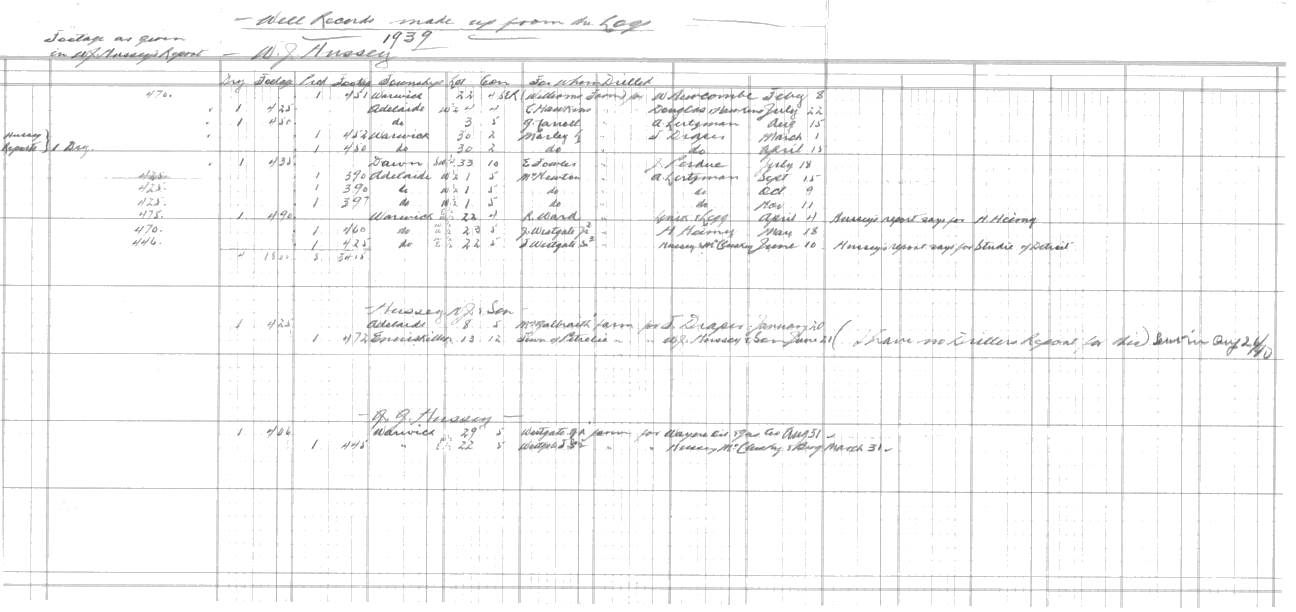 Well Records made up from the Logs
1939
Footage as given
in W.J. Hussey's Report
W. J. Hussey
Dry Footage Prod Footage Township Lot Con For Whom Drilled
470. 1 451 Warwick 22 4 SER (Williams Farm) for W. Newcombe Feby 8
1 425 Adelaide W½ 4 4 C Hawkins " Douglas Hawkins July 22
1 450 do 3 5 " A Lutzman Aug 15
Hussey Reports } 1 Dry. 1 452 Warwick 30 2 Morley " J Draper March 1
1 450 do 30 2 do " do April 15
1 435 Dawn 33 10 E Fowler " J. Perdue July 18
425. 1 390 Adelaide W½ 1 5 McNewton " A Lutzman Sept 15
425. 1 390 do W½ 1 5 do " do Oct 9
425. 1 397 do W½ 1 5 do " do Nov 11
475. 1 490 Warwick 22 4 R. Ward " April 4 Hussey's report says for H. Heimy
470. 1 460 do 23 5 J. Westgate " H Heimy May 18
446. 1 425 do 22 5 J Westgate " Hussey & McClusky June 10 Hussey's report says for Studie of Detroit
4 1800 8 3415
Hussey W.J. & Son
1 425 Adelaide 8 5 McGalbraith farm for J. Draper January 20
1 472 Enniskillen 13 12 Town of Petrolia " " W.J. Hussey & Son June 21 (I have no Drillers Report for this) Sent in Aug 26/40
J. J. Hussey
1 406 Warwick 29 5 Westgate farm for Wayne Oil & Gas Co Aug 31
1 445 " 22 5 Westgate " " Hussey McClusky & Berg March 31